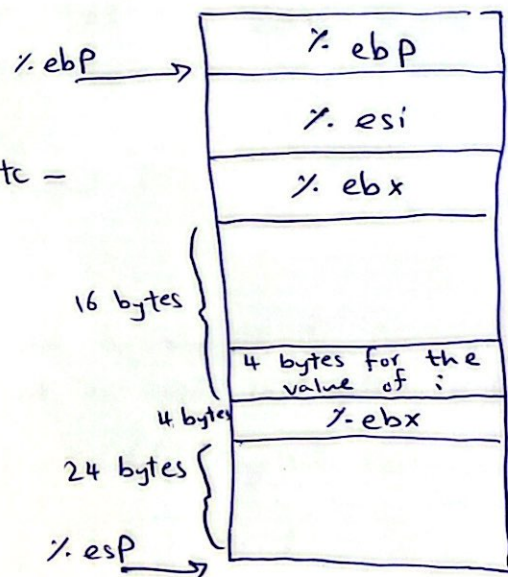 % ebp
% ebp
% esi
tc –
% ebx
16 bytes
4 bytes for the
value of i
4 bytes
% ebx
24 bytes
% esp